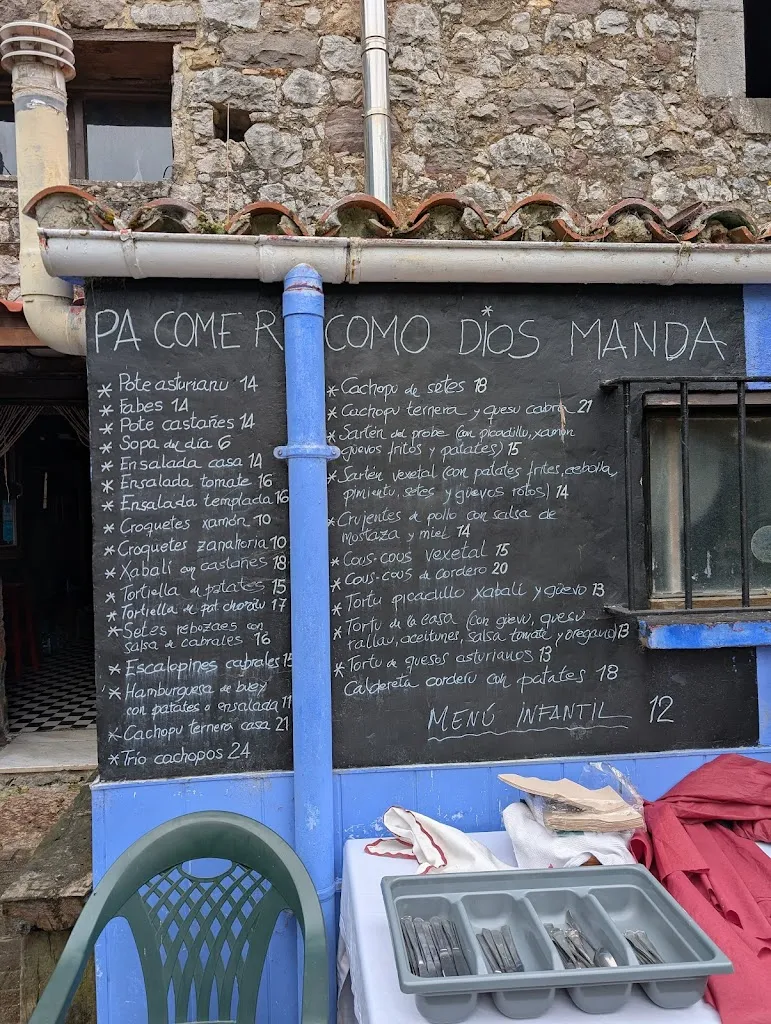 PA COMER COMO DIOS MANDA
* Pote asturianu 14
* Fabes 14
* Pote castañes 14
* Sopa del día 6
* Ensalada casa 14
* Ensalada tomate 16
* Ensalada templada 16
* Croquetes xamón 10
* Croquetes zanahoria 10
* Xabalí con castañes 18
* Tortiella de patates 15
* Tortiella de pat chorizu 17
* Setes rebozaes con
salsa de cabrales 16
* Escalopines cabrales 15
* Hamburguesa de buey
con patates o ensalada 11
* Cachopu ternera casa 21
* Trío cachopos 24
* Cachopu de setes 18
* Cachopu ternera y quesu cabra 21
* Sartén del probe (con picadillu, xamón
güevos fritos y patates) 15
* Sartén vexetal (con patates frites, cebolla,
pimientu, setes y güevos rotos) 14
* Crujientes de pollo con salsa de
mostaza y miel 14
* Cous-cous vexetal 15
* Cous-cous de corderu 20
* Tortu picadillo xabalí y güevo 13
* Tortu de la casa (con güevu, quesu
rallau, aceitunes, salsa tomate y oreganu) 13
* Tortu de quesos asturianos 13
Caldereta corderu con patates 18
MENÚ INFANTIL 12